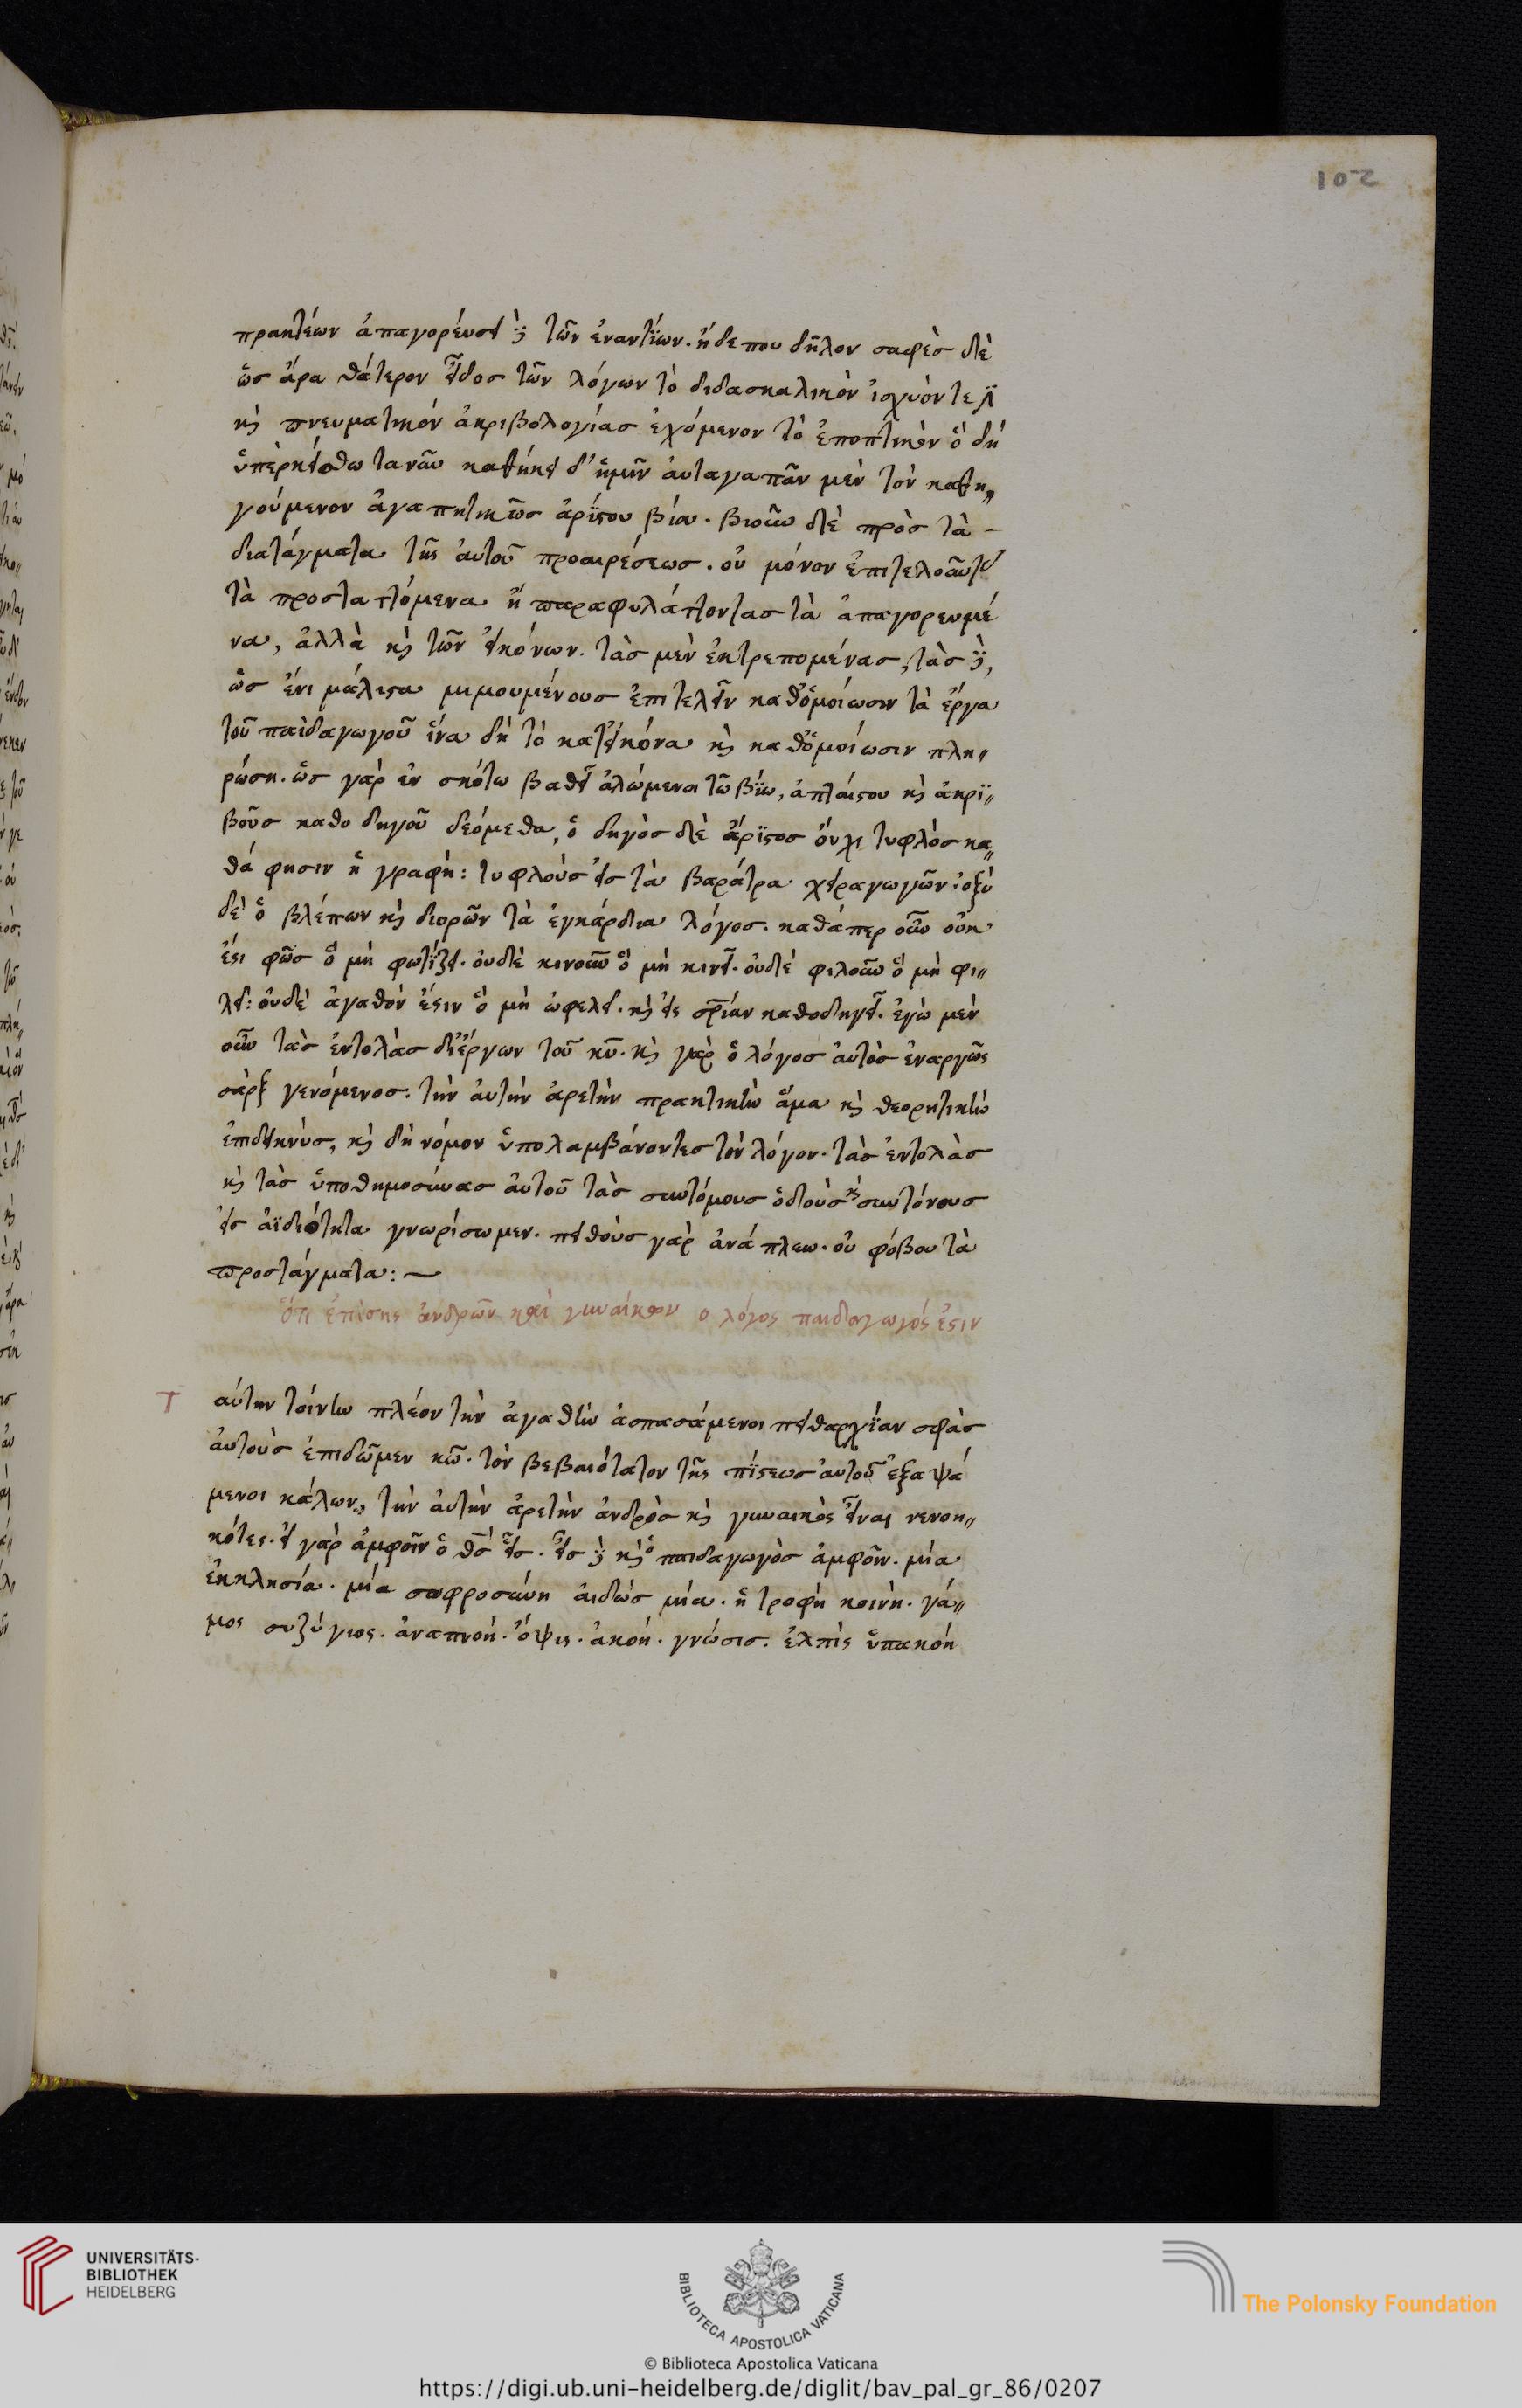 102
πρακτέων ἀπαγορεύσει δὲ τῶν ἐναντίων. ἥδε που δῆλον σαφὲς δὲ
ὡς ἄρα θάτερον εἶδος τῶν λόγων τὸ διδασκαλικὸν ἰσχνόν τε
κὶ πνευματικόν ἀκριβολογίας ἐχόμενον τὸ ἐποπτικὸν ὃ δὴ
ὑπερκείσθω τανῦν καθήκει δ' ἡμῖν ἀνταγαπᾶν μὲν τὸν καθη„
γούμενον ἀγαπητικῶς ἀρίστου βίου. βιοῦν δὲ πρὸς τὰ -
διατάγματα τῆς αὐτοῦ προαιρέσεως. οὐ μόνον ἐπιτελοῦντας
τὰ προστατλόμενα ἢ παραφυλάττοντας τὰ ἀπαγορευμέ
να, ἀλλὰ κὶ τῶν εἰκόνων. τὰς μὲν ἐκτρεπομένας, τὰς δὲ,
ὡς ἔνι μάλιστα μιμουμένους ἐπιτελεῖν καθ' ὁμοίωσιν τὰ ἔργα
τοῦ παιδαγωγοῦ ἵνα δὴ τὸ κατ' εἰκόνα κὶ καθ' ὁμοίωσιν πλη„
ρώση. ὡς γὰρ ἐν σκότω βαθεῖ ἀλώμενοι τῶ βίω, ἀπταίστου κὶ ἀκρι„
βοῦς καθοδηγοῦ δεόμεθα, ὁδηγὸς δὲ ἄριστος οὐχὶ τυφλὸς κα„
θά φησιν ἡ γραφή: τυφλοὺς εἰς τὰ βάραθρα χειραγωγῶν. ὀξὺ
δὲ ὁ βλέπων κὶ διορῶν τὰ ἐγκάρδια λόγος. καθάπερ οὖν οὐκ
ἔστι φῶς ὃ μὴ φωτίζει. οὐδὲ κινοῦν ὃ μὴ κινεῖ. οὐδὲ φιλοῦν ὃ μὴ φι„
λεῖ: οὐδὲ ἀγαθόν ἐστιν ὃ μὴ ὠφελεῖ. κὶ εἰς σρίαν καθοδηγεῖ. ἐγὼ μὲν
οὖν τὰς ἐντολὰς δι' ἔργων τοῦ κυ. κὶ γὰρ ὁ λόγος αὐτὸς ἐναργῶς
σὰρξ γενόμενος. τὴν αὐτὴν ἀρετὴν πρακτικὴν ἅμα κὶ θεορητικὴν
ἐπιδεικνὺς, κὶ δὴ νόμον ὑπολαμβάνοντες τὸν λόγον. τὰς ἐντολὰς
κὶ τὰς ὑποθημοσύνας αὐτοῦ τὰς συντόμους ὁδοὺς κὶ συντόνους
εἰς ἀϊδιότητα γνωρίσωμεν. πειθοῦς γὰρ ἀνάπλεω. οὐ φόβου τὰ
προστάγματα: —
ὅτι ἐπίσης ἀνδρῶν καὶ γυναίκων ὁ λόγος παιδαγωγός ἐστιν
Τ αύτην τοίνυν πλέον τὴν ἀγαθὴν ἀσπασάμενοι πειθαρχίαν σφὰς
αὐτοὺς ἐπιδῶμεν κῶ. τὸν βεβαιότατον τῆς πίστεως αὐτοῦ ἐξαψά
μενοι κάλων, τὴν αὐτὴν ἀρετὴν ἀνδρὸς κὶ γυναικὸς εἶναι νενοη„
κότες. εἰ γὰρ ἀμφοῖν ὁ θς εἷς. εἷς δὲ κὶ ὁ παιδαγωγὸς ἀμφοῖν. μία
ἐκκλησία. μία σωφροσύνη αἰδὼς μία. ἡ τροφὴ κοινὴ. γά„
μος συζύγιος. ἀναπνοή. ὄψις. ἀκοή. γνῶσις. ἐλπὶς ὑπακοή
UNIVERSITÄTS-
BIBLIOTHEK
HEIDELBERG
BIBLIOTECA APOSTOLICA VATICANA
The Polonsky Foundation
© Biblioteca Apostolica Vaticana
https://digi.ub.uni-heidelberg.de/diglit/bav_pal_gr_86/0207